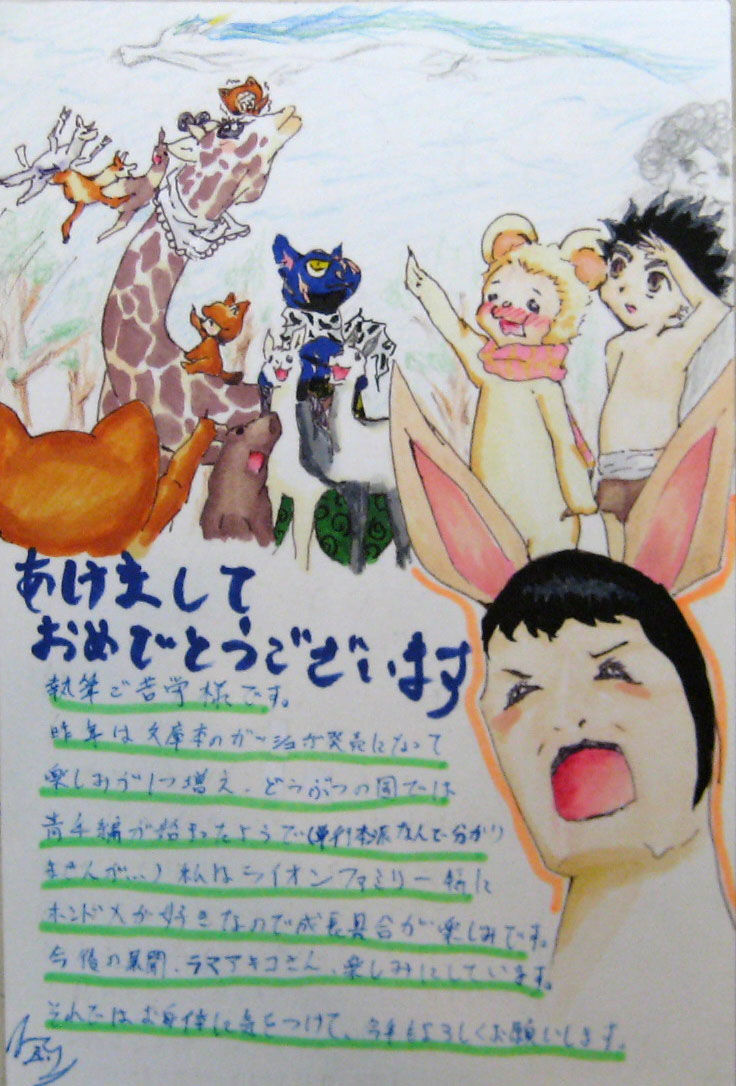 あけまして
おめでとうございます
執筆ご苦労様です。
昨年は文庫本のガッシュが発売になって
楽しみが1つ増え、どうぶつの国では
青年編が始まったようで(単行本派なんで分かり
ませんが…)私はライオンファミリー特に
ホンドメが好きなので成長具合が楽しみです。
今後の展開、ラマアキコさん、楽しみにしています。
それではお身体に気をつけて、今年もよろしくお願いします。